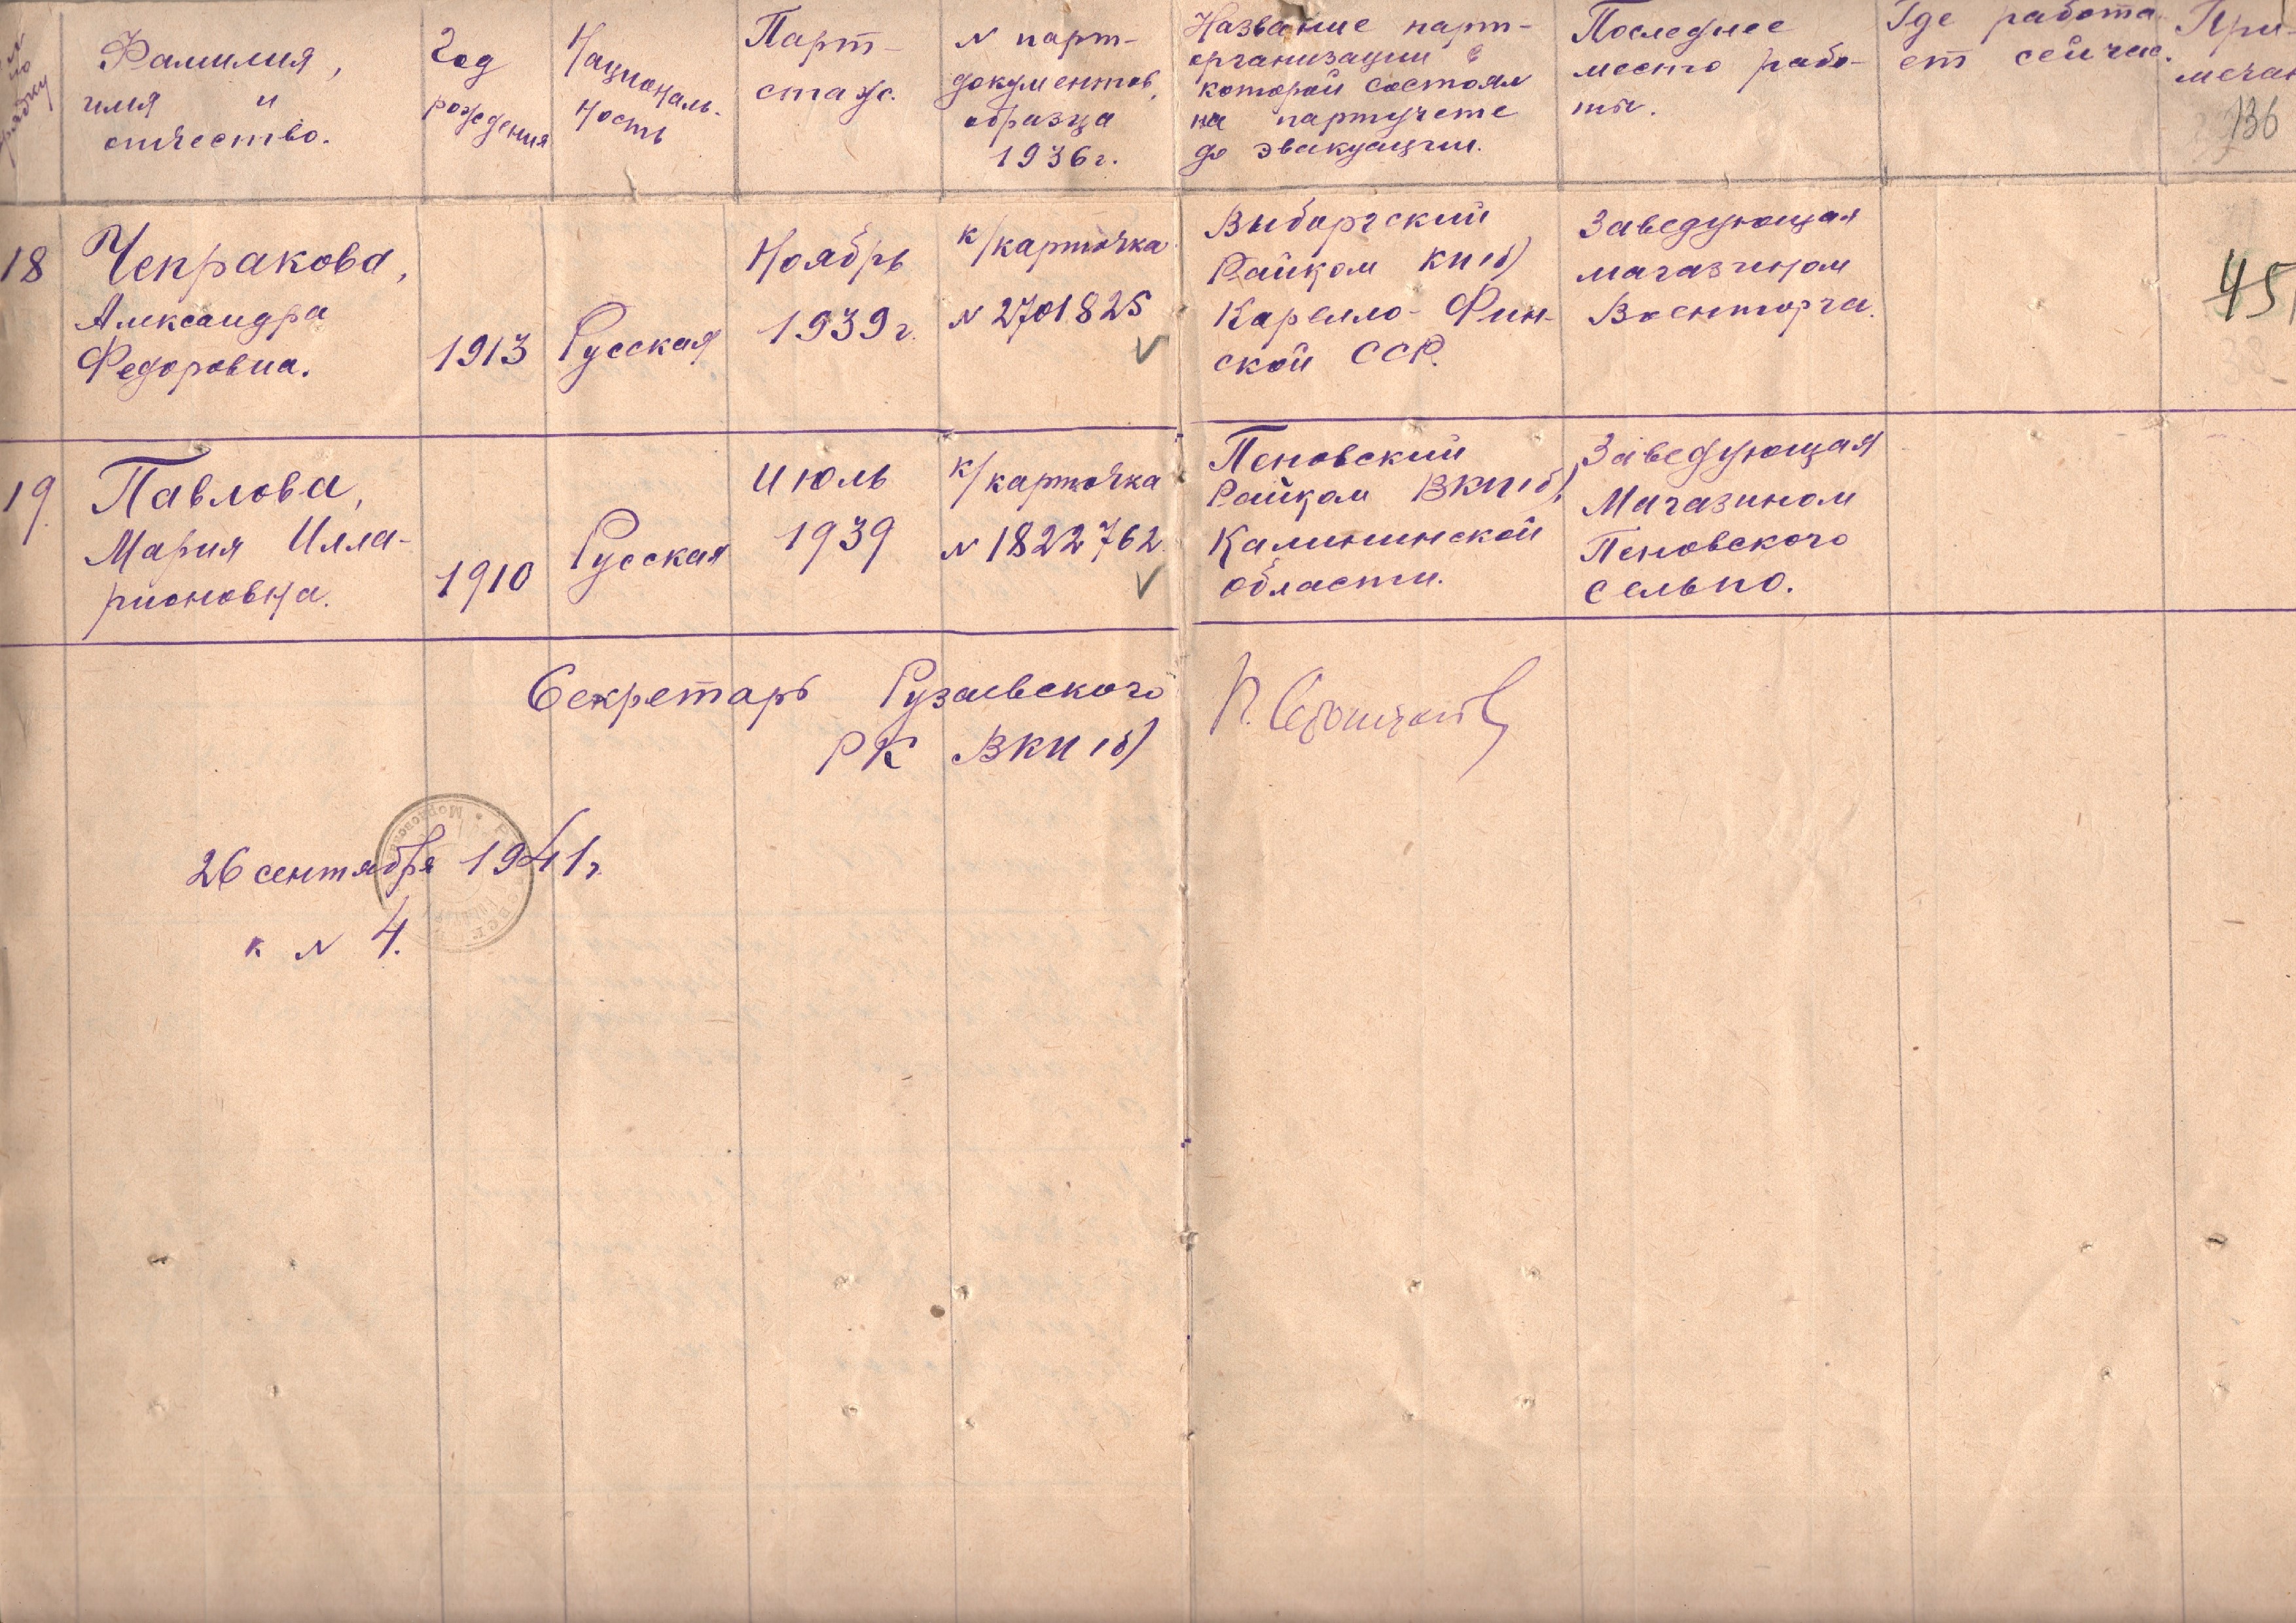 по порядку
Фамилия,
имя и
отчество.
Год
рождения
Националь-
ность
Парт-
стаж.
N парт-
документов,
образца
1936г.
Название парт-
организации в
которой состоял
на партучете
до эвакуации.
Последнее
место рабо-
ты.
Где работа-
ет сейчас.
При-
мечан
136
18
Чепракова,
Александра
Федоровна.
1913
Русская
Ноябрь
1939г.
к/карточка
N 2701825
Выборгский
Райком КП(б)
Карелло-Фин-
ской ССР.
Заведующая
магазином
Военторга.
45
19.
Павлова,
Мария Илла-
рионовна.
1910
Русская
Июль
1939
к/карточка
N 1822762
Пеновский
Райком ВКП(б),
Калининской
области.
Заведующая
Магазином
Пеновского
сельпо.
Секретарь Рузаевского
РК ВКП(б)
26 сентября 1941г.
к N 4.